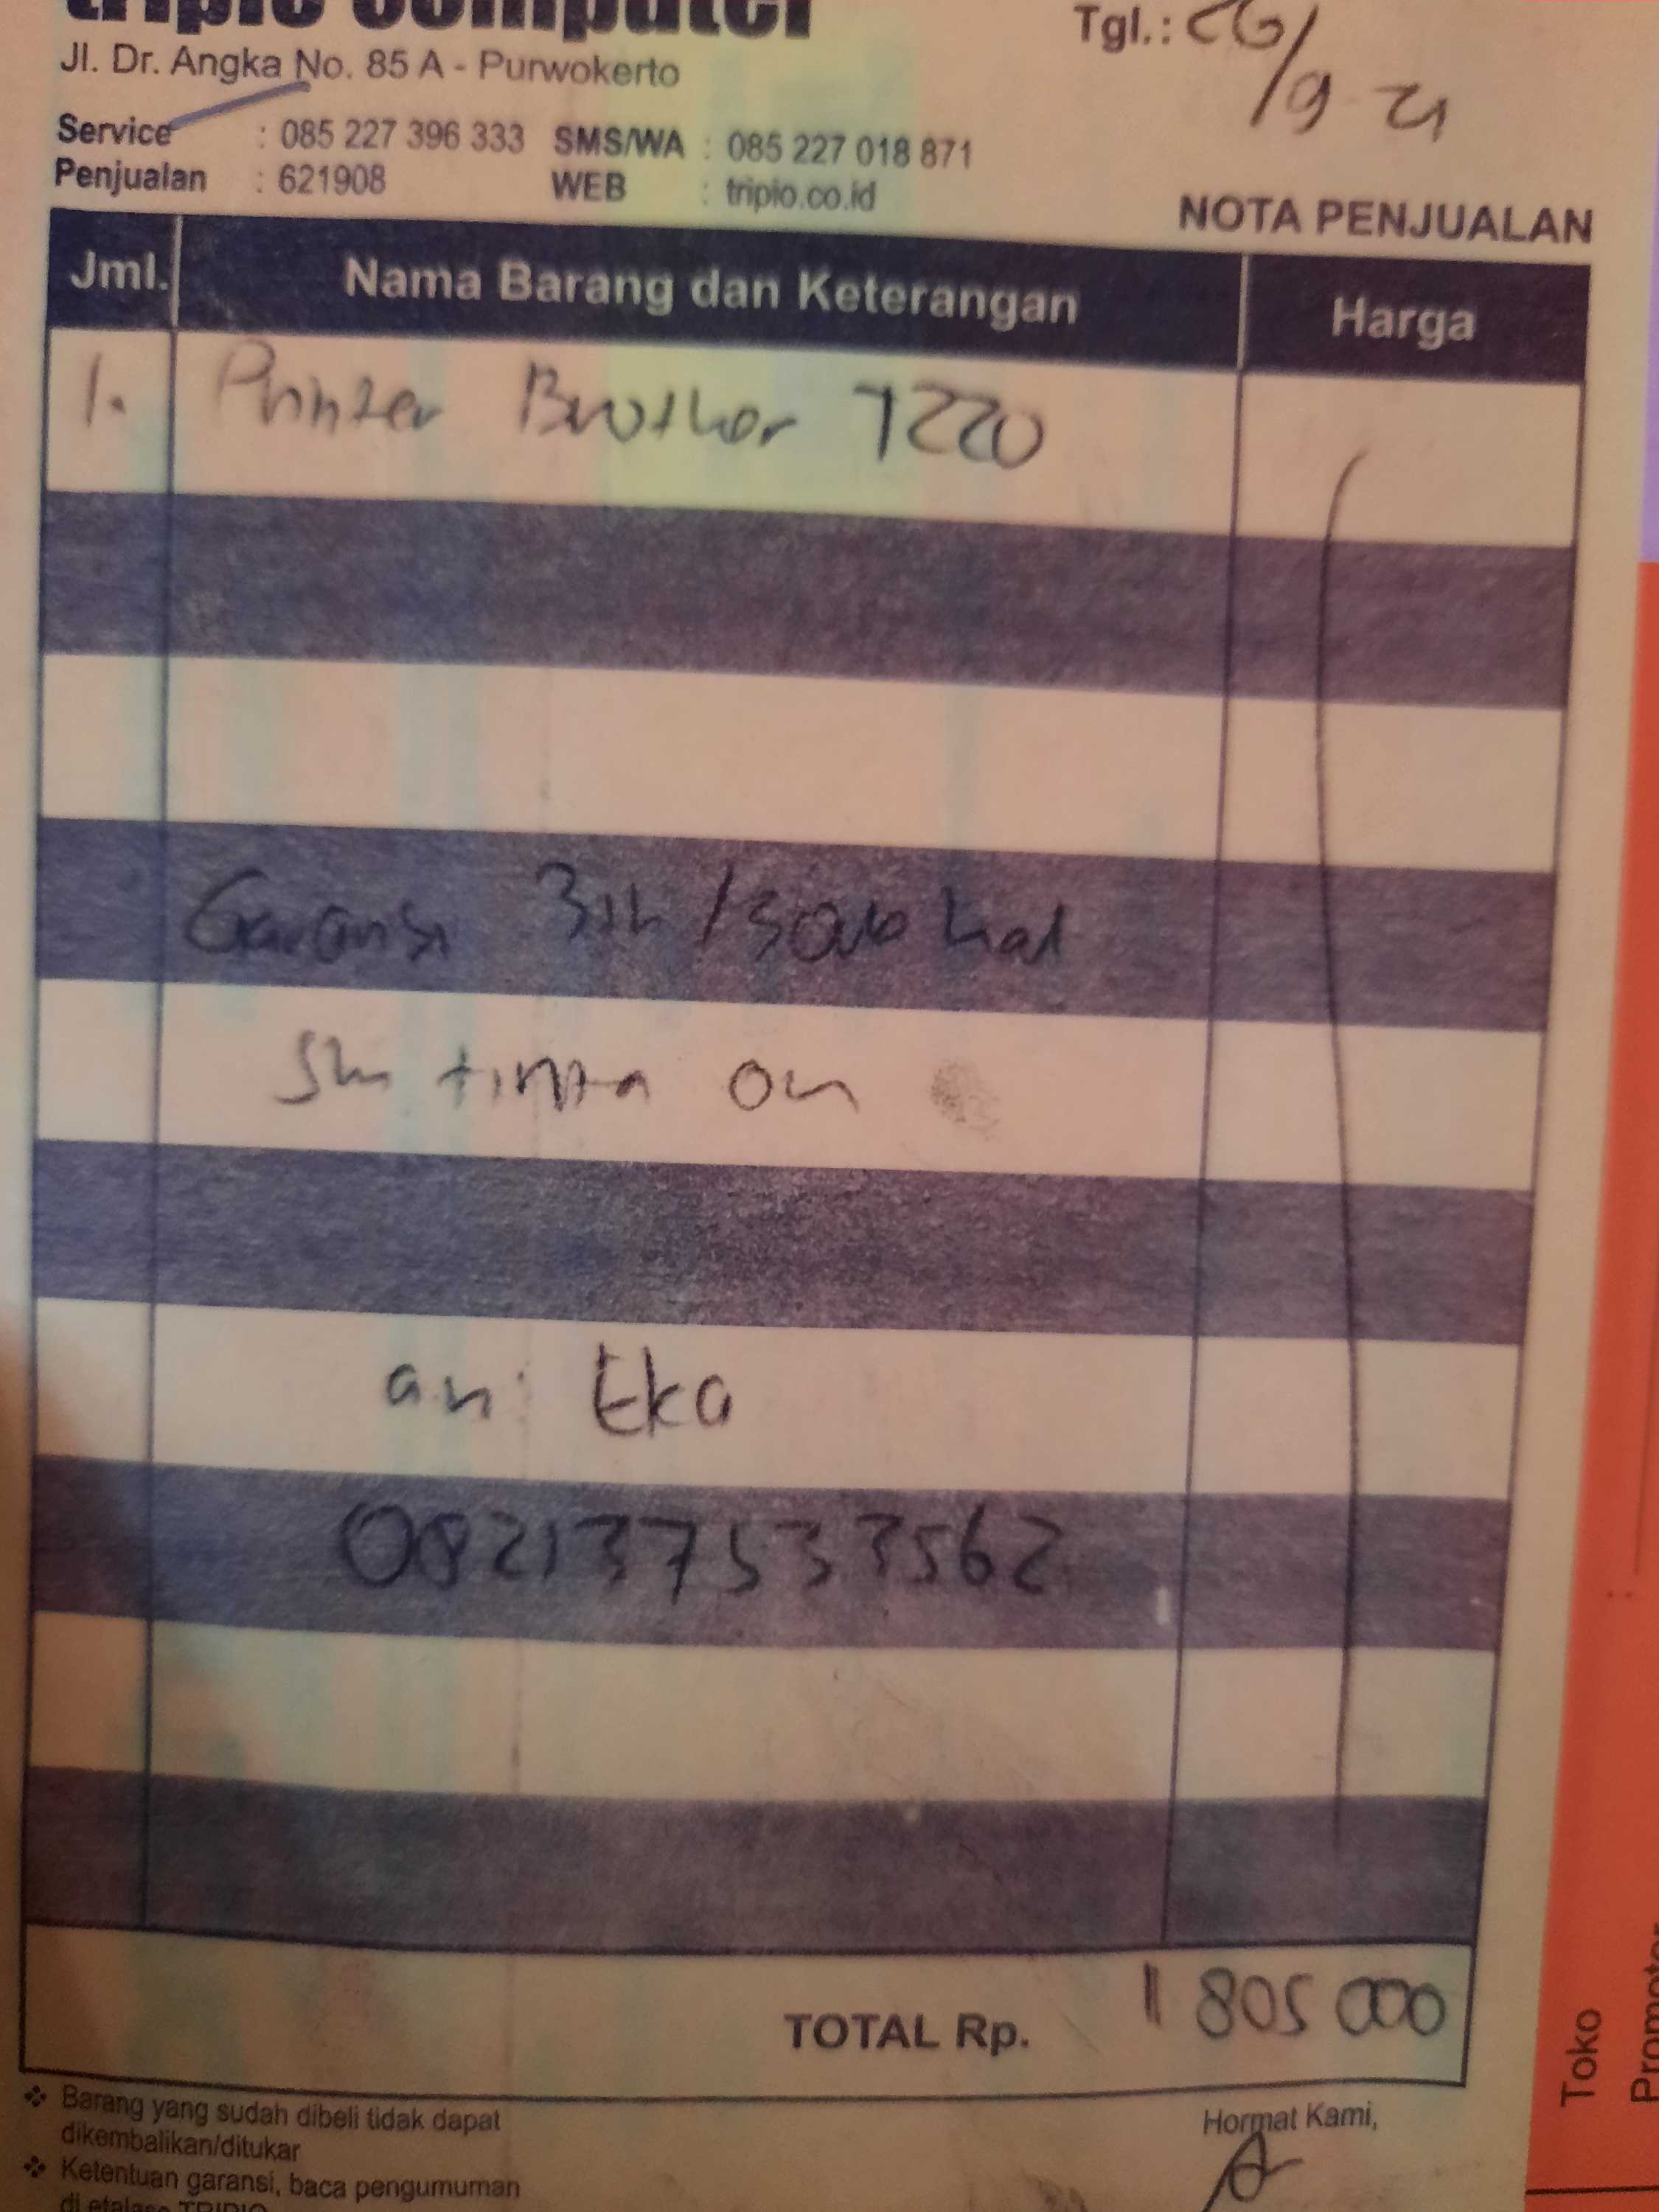 tripio computer
Jl. Dr. Angka No. 85 A - Purwokerto
Tgl.: 26/9-21
Service : 085 227 396 333 SMS/WA : 085 227 018 871
Penjualan : 621908 WEB : tripio.co.id
NOTA PENJUALAN
Jml. Nama Barang dan Keterangan Harga
1. Printer Brother T220
Garansi 3th/30rb hal
tinta ori
an: Eka
082137533562
TOTAL Rp. 1 805 000
❖ Barang yang sudah dibeli tidak dapat
dikembalikan/ditukar
❖ Ketentuan garansi, baca pengumuman
di etalase TRIPIO
Hormat Kami,
Toko
Promoter